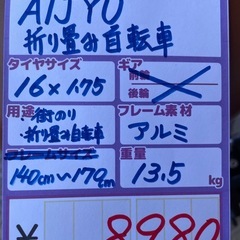 AIJYO
折り畳み自転車
タイヤサイズ
16×1.75
ギア
前輪
後輪
用途 街のり
・折り畳み自転車
フレーム素材
アルミ
フレームサイズ
140cm〜179cm
重量
13.5 kg
¥ 8980